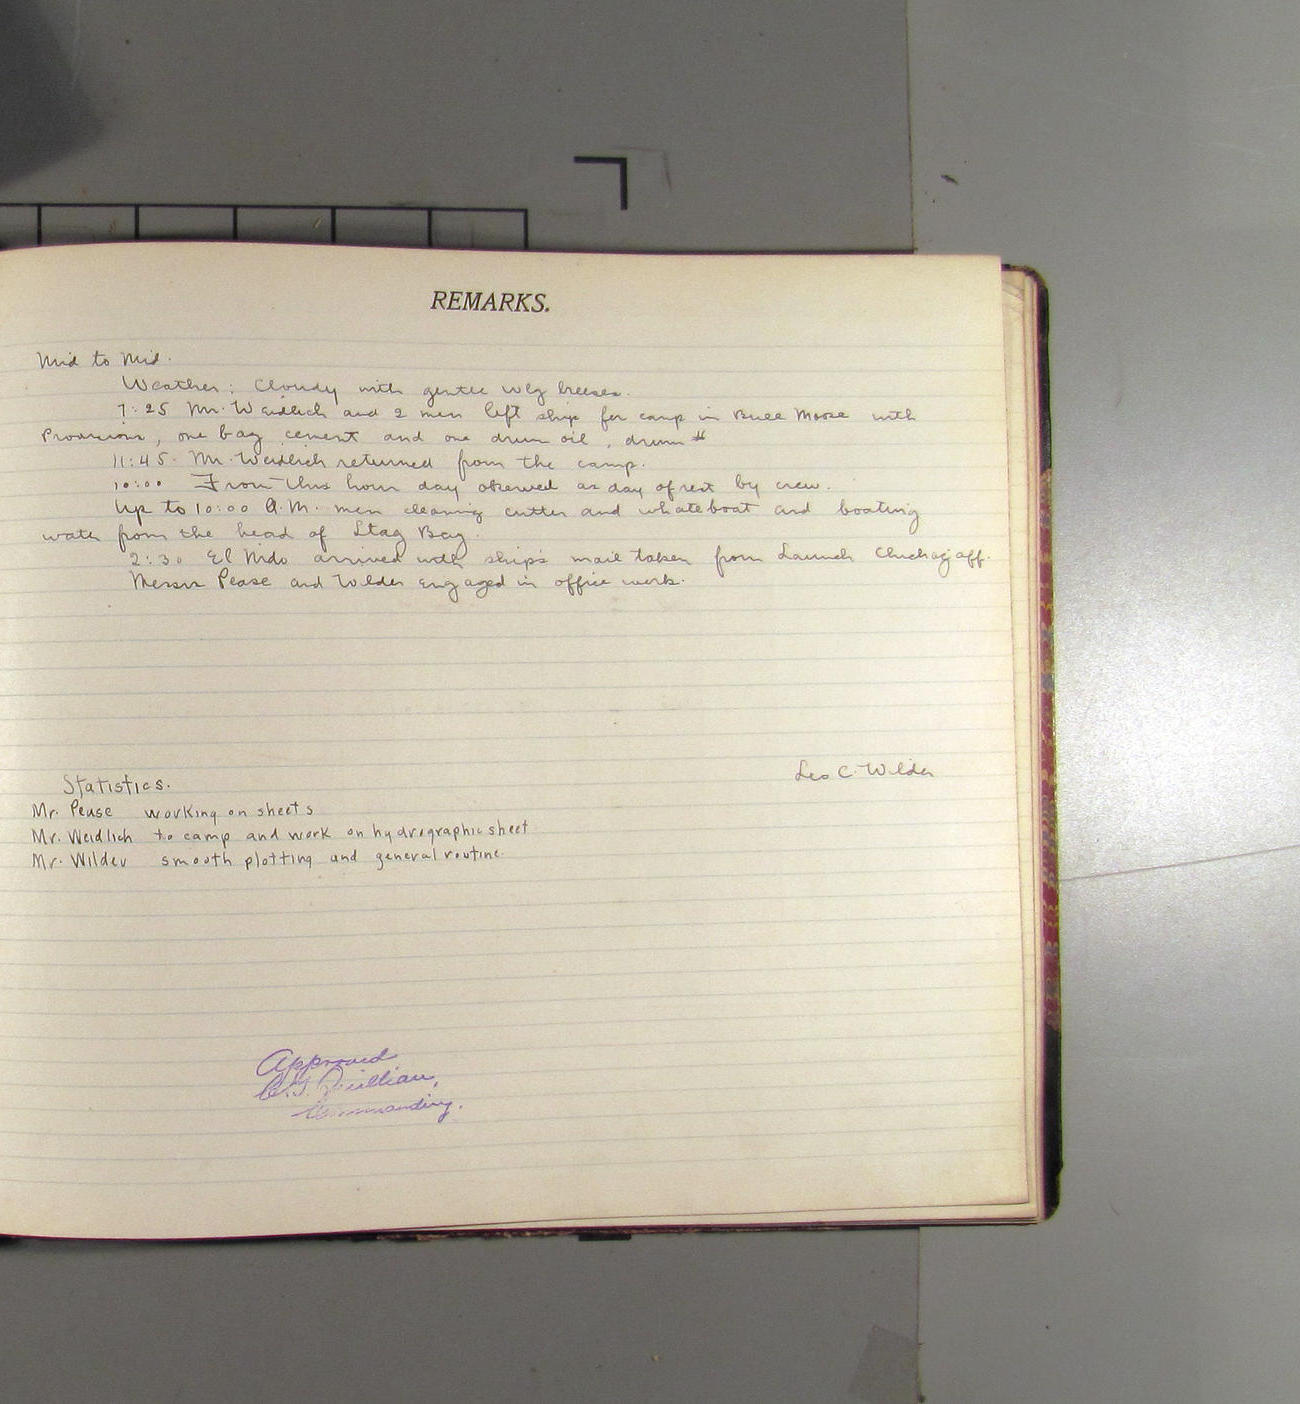 REMARKS.
Mid to Mid.
Weather: Cloudy with gentle Wly breezes.
7:25 Mr. Weidlich and 2 men left ship for camp in Bull Moose with
Provisions, one bag cement and one drum oil, drum #
11:45. Mr. Weidlich returned from the camp.
10:00 From this hour day observed as day of rest by crew.
Up to 10:00 A.M. men cleaning cutter and whaleboat and boating
water from the head of Stag Bay.
2:30 El Nido arrived with ship's mail taken from Launch Chichagoff.
Messrs Pease and Wilder engaged in office work.
Leo C. Wilder
Statistics.
Mr. Pease working on sheets
Mr. Weidlich to camp and work on hydrographic sheet
Mr. Wilder smooth plotting and general routine
Approved
Quillian,
Commanding.